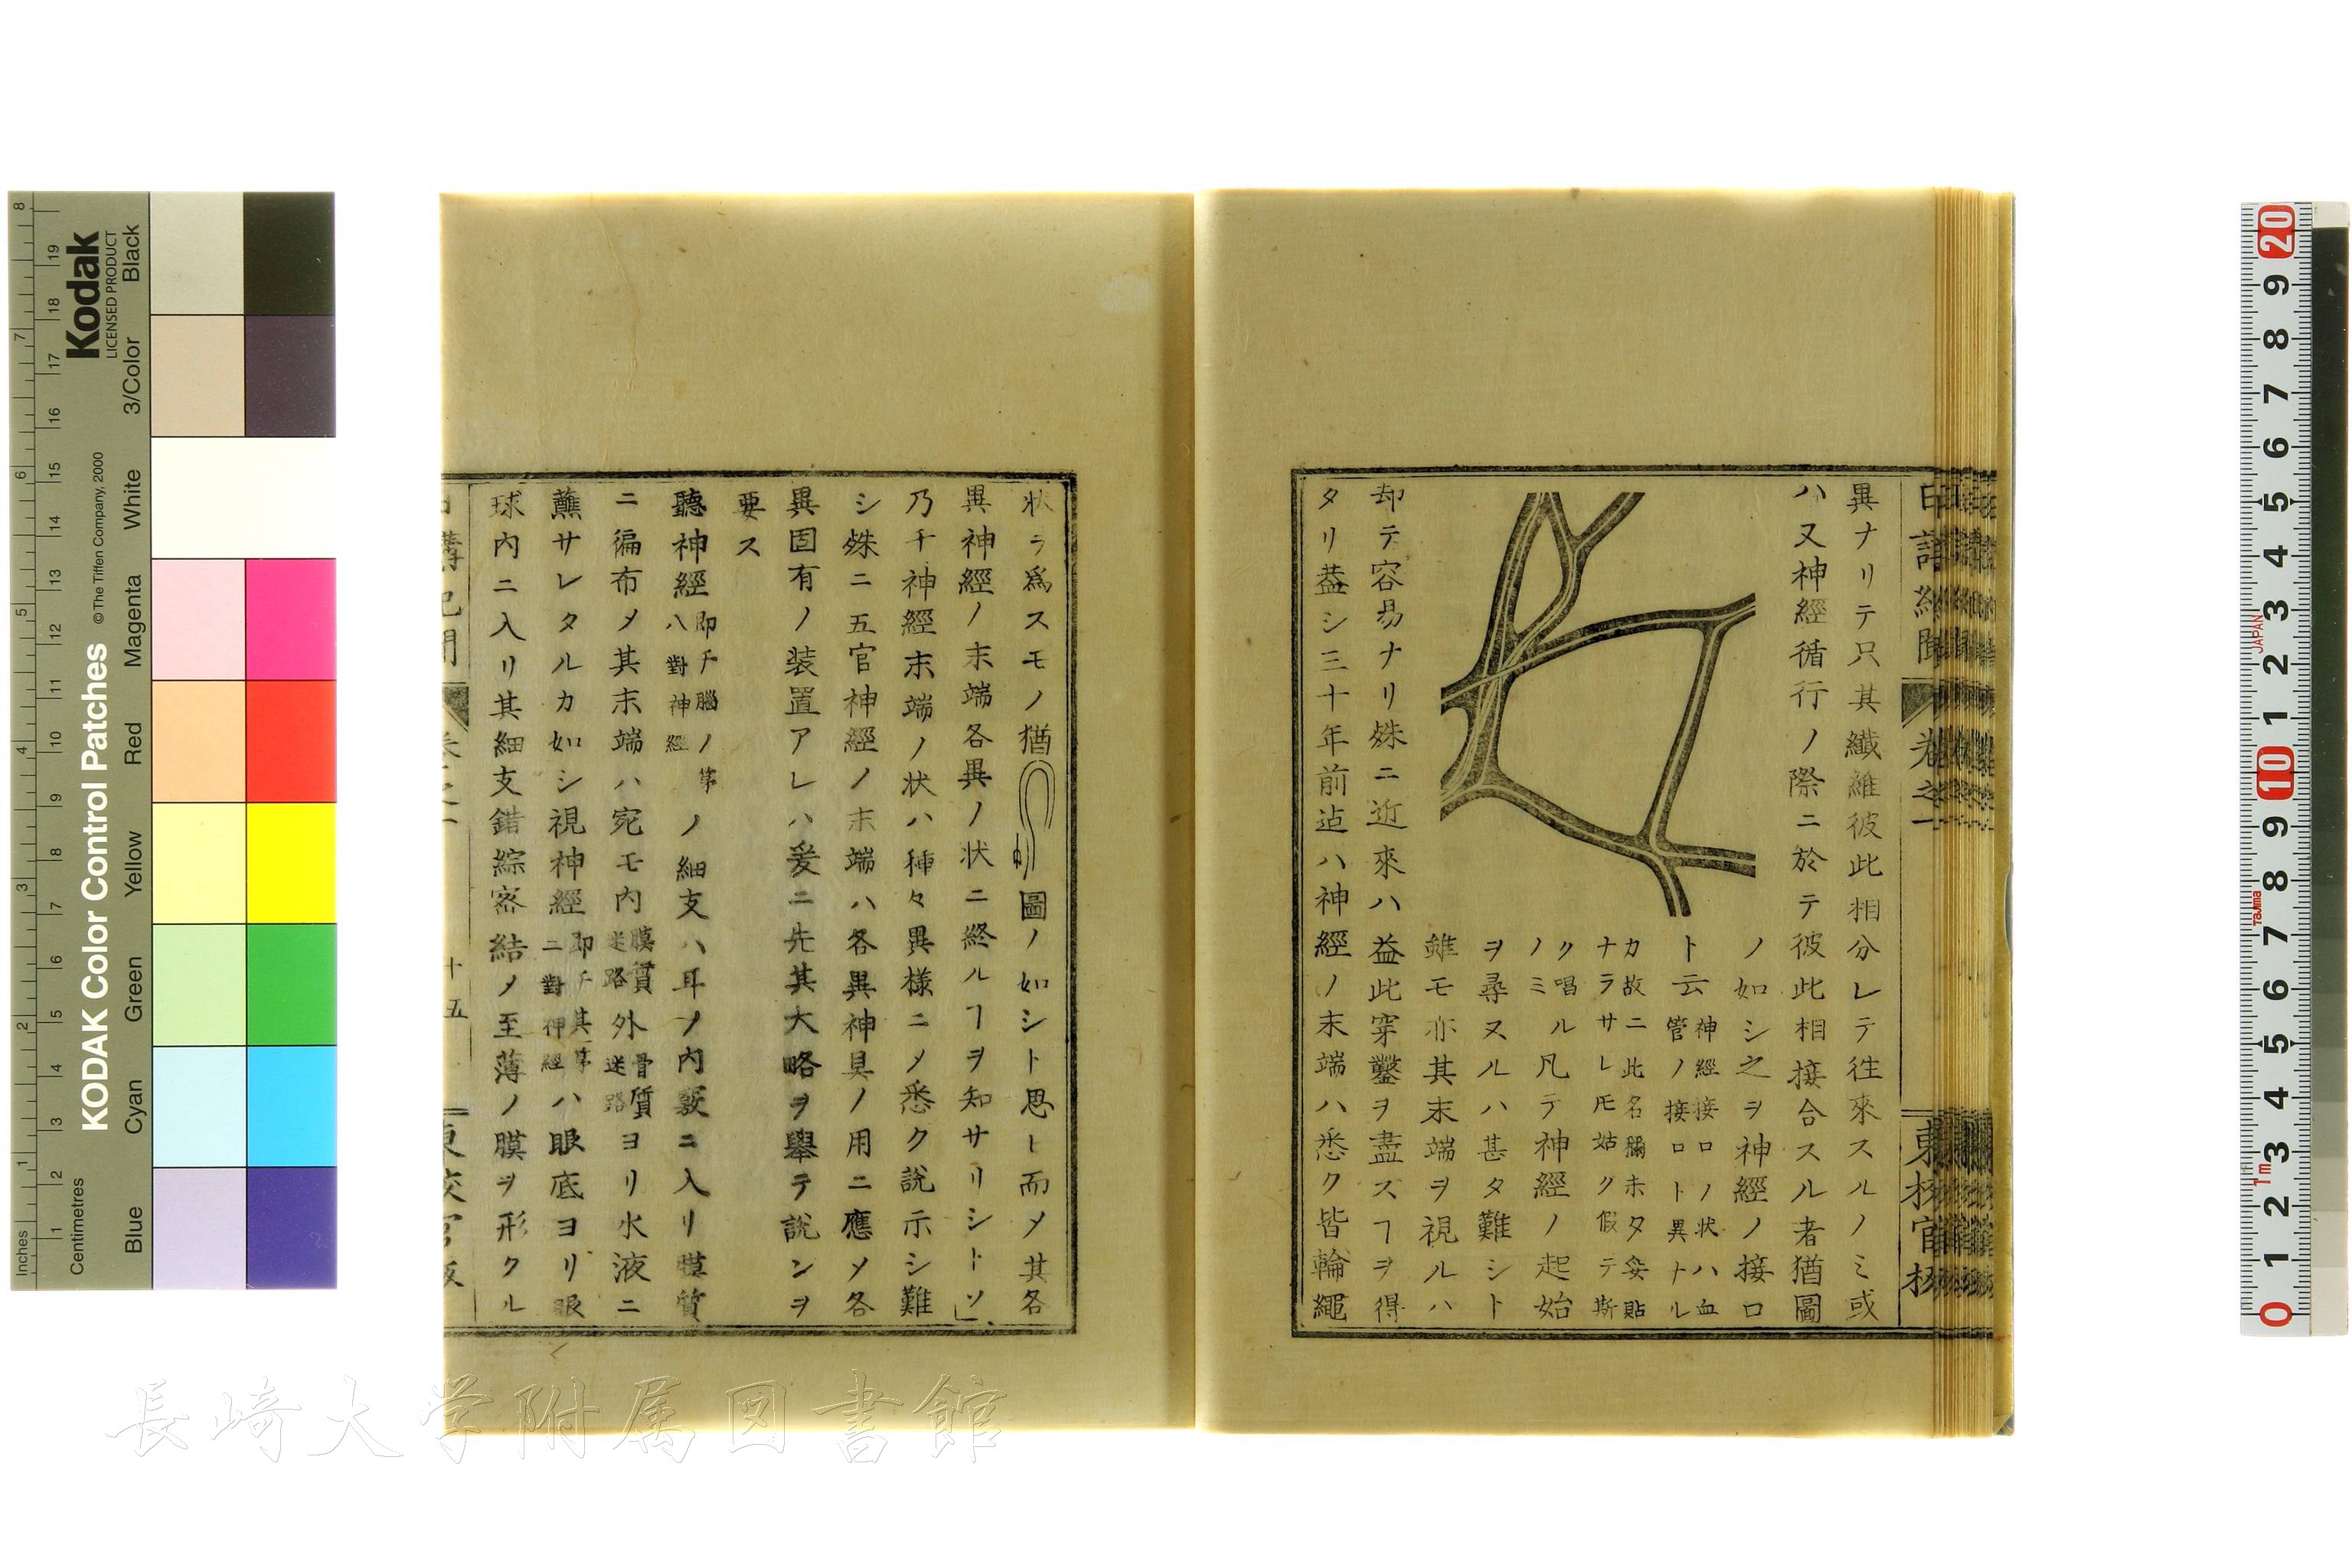 異ナリテ只其纖維彼此相分レテ徃來スルノミ或
ハ又神經循行ノ際ニ於テ彼此相接合スル者猶圖
ノ如シ之ヲ神經ノ接口
ト云 神經接口ノ状ハ血
管ノ接口ト異ナル
カ故ニ此名稱未タ妥貼
ナラサレ𪜈姑ク假テ斯
ク唱ル
ノミ 凡テ神經ノ起始
ヲ尋ヌルハ甚タ難シト
雖モ亦其末端ヲ視ルハ
却テ容易ナリ殊ニ近來ハ益此穿鑿ヲ盡スヿヲ得
タリ葢シ三十年前迠ハ神經ノ末端ハ悉ク皆輪繩
卷之一
状ヲ爲スモノ猶圖ノ如シト思ヒ而乄其各
異神經ノ末端各異ノ状ニ終ルヿヲ知サリシトソ
乃千神經末端ノ状ハ種々異樣ニ乄悉ク説示シ難
シ殊ニ五官神經ノ末端ハ各異神具ノ用ニ應乄各
異固有ノ装置アレハ爰ニ先其大略ヲ舉テ説ンヲ
要ス
聽神經 即チ腦ノ第
八對神經 ノ細支ハ耳ノ内竅ニ入リ膜質
ニ徧布乄其末端ハ宛モ内 膜質
迷路 外 骨質
迷路 ヨリ水液ニ
蘸サレタルカ如シ視神經 即チ其第
二對神經 ハ眼底ヨリ眼
球内ニ入リ其細支錯綜密結乄至薄ノ膜ヲ形クル
十五
Kodak
LICENSED PRODUCT
KODAK Color Control Patches
© The Tiffen Company, 2000
Black
3/Color
White
Magenta
Red
Yellow
Green
Cyan
Blue
Inches
1 2 3 4 5 6 7 8
Centimetres
1 2 3 4 5 6 7 8 9 10 11 12 13 14 15 16 17 18 19
20 9 8 7 6 5 4 3 2 1 10 9 8 7 6 5 4 3 2 1 0
JAPAN
Tajima
1m
長崎大学附属図書館